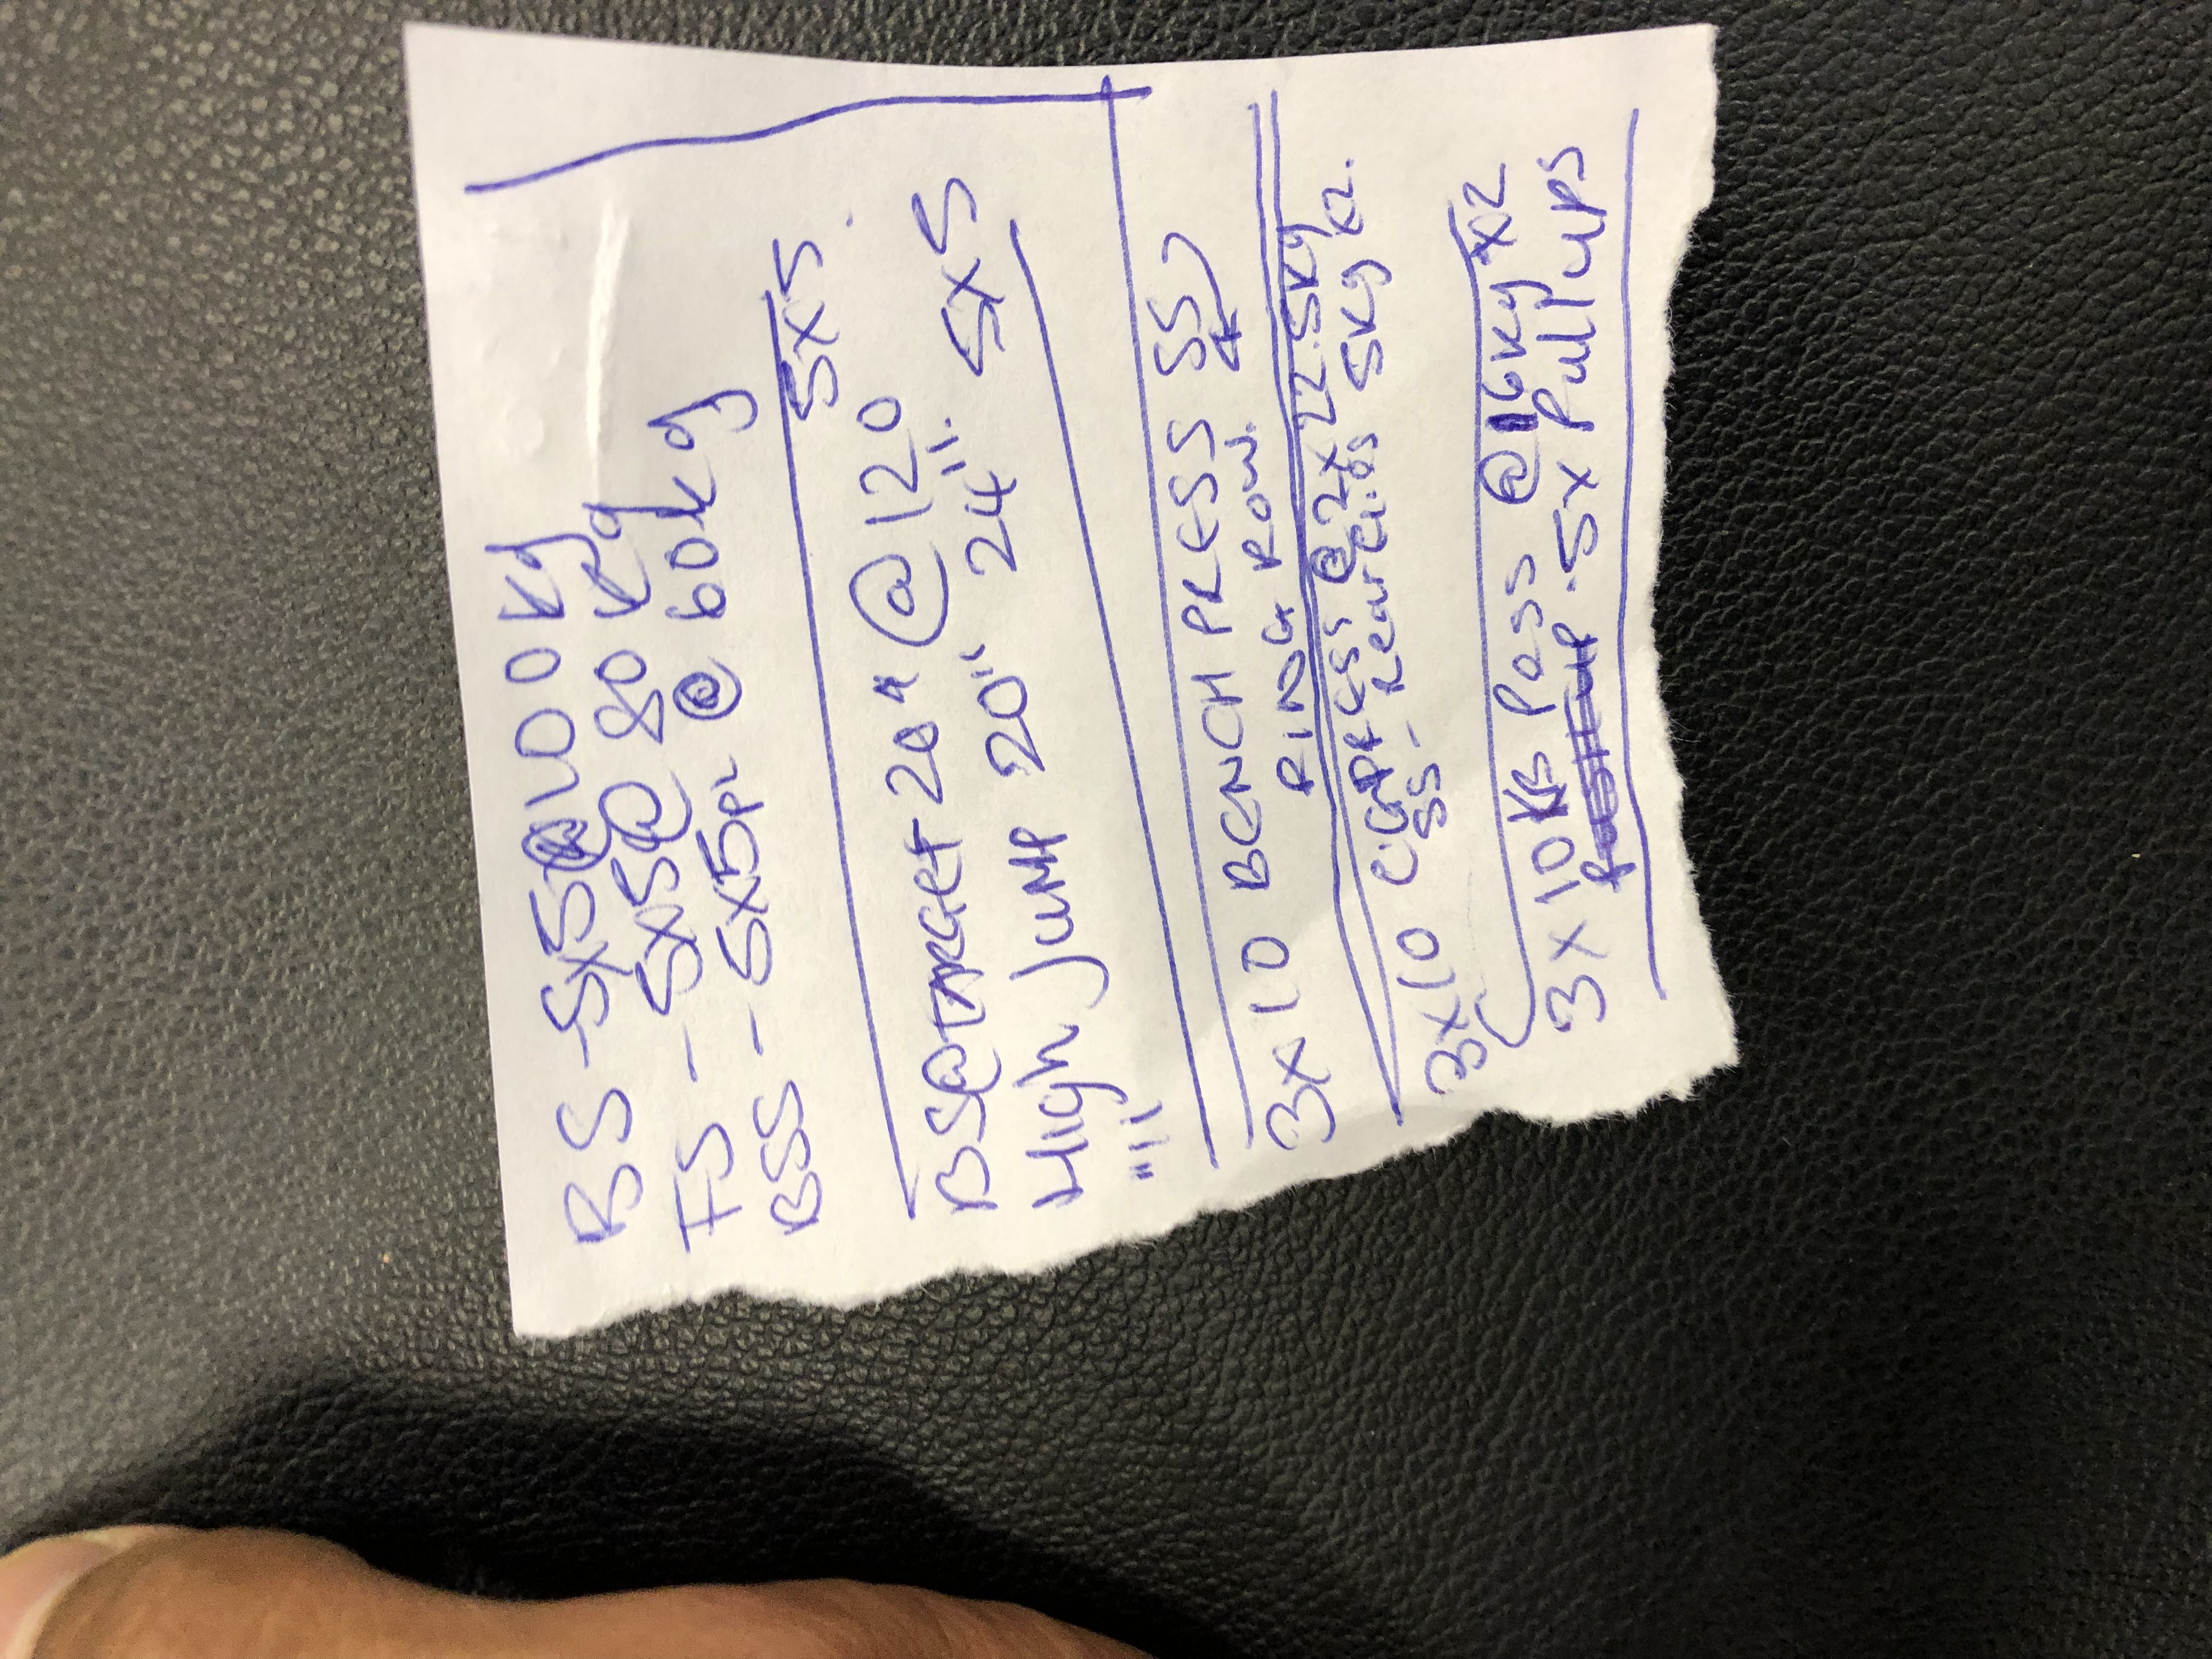 BS - 5x5@100kg
FS - 5x5@ 80 kg
BSS - 5x5PL @ 60kg
BS@TARGET 20" @ 120 5x5.
High Jump 20" 24". 5x5
"11
3x10 BENCH PRESS SS
RING ROW.
3x10 CGPRESS @ 2x22.5kg
SS - Rear 5kg x2.
3x10 KB Pass @ 16kg x2
5x Pull ups